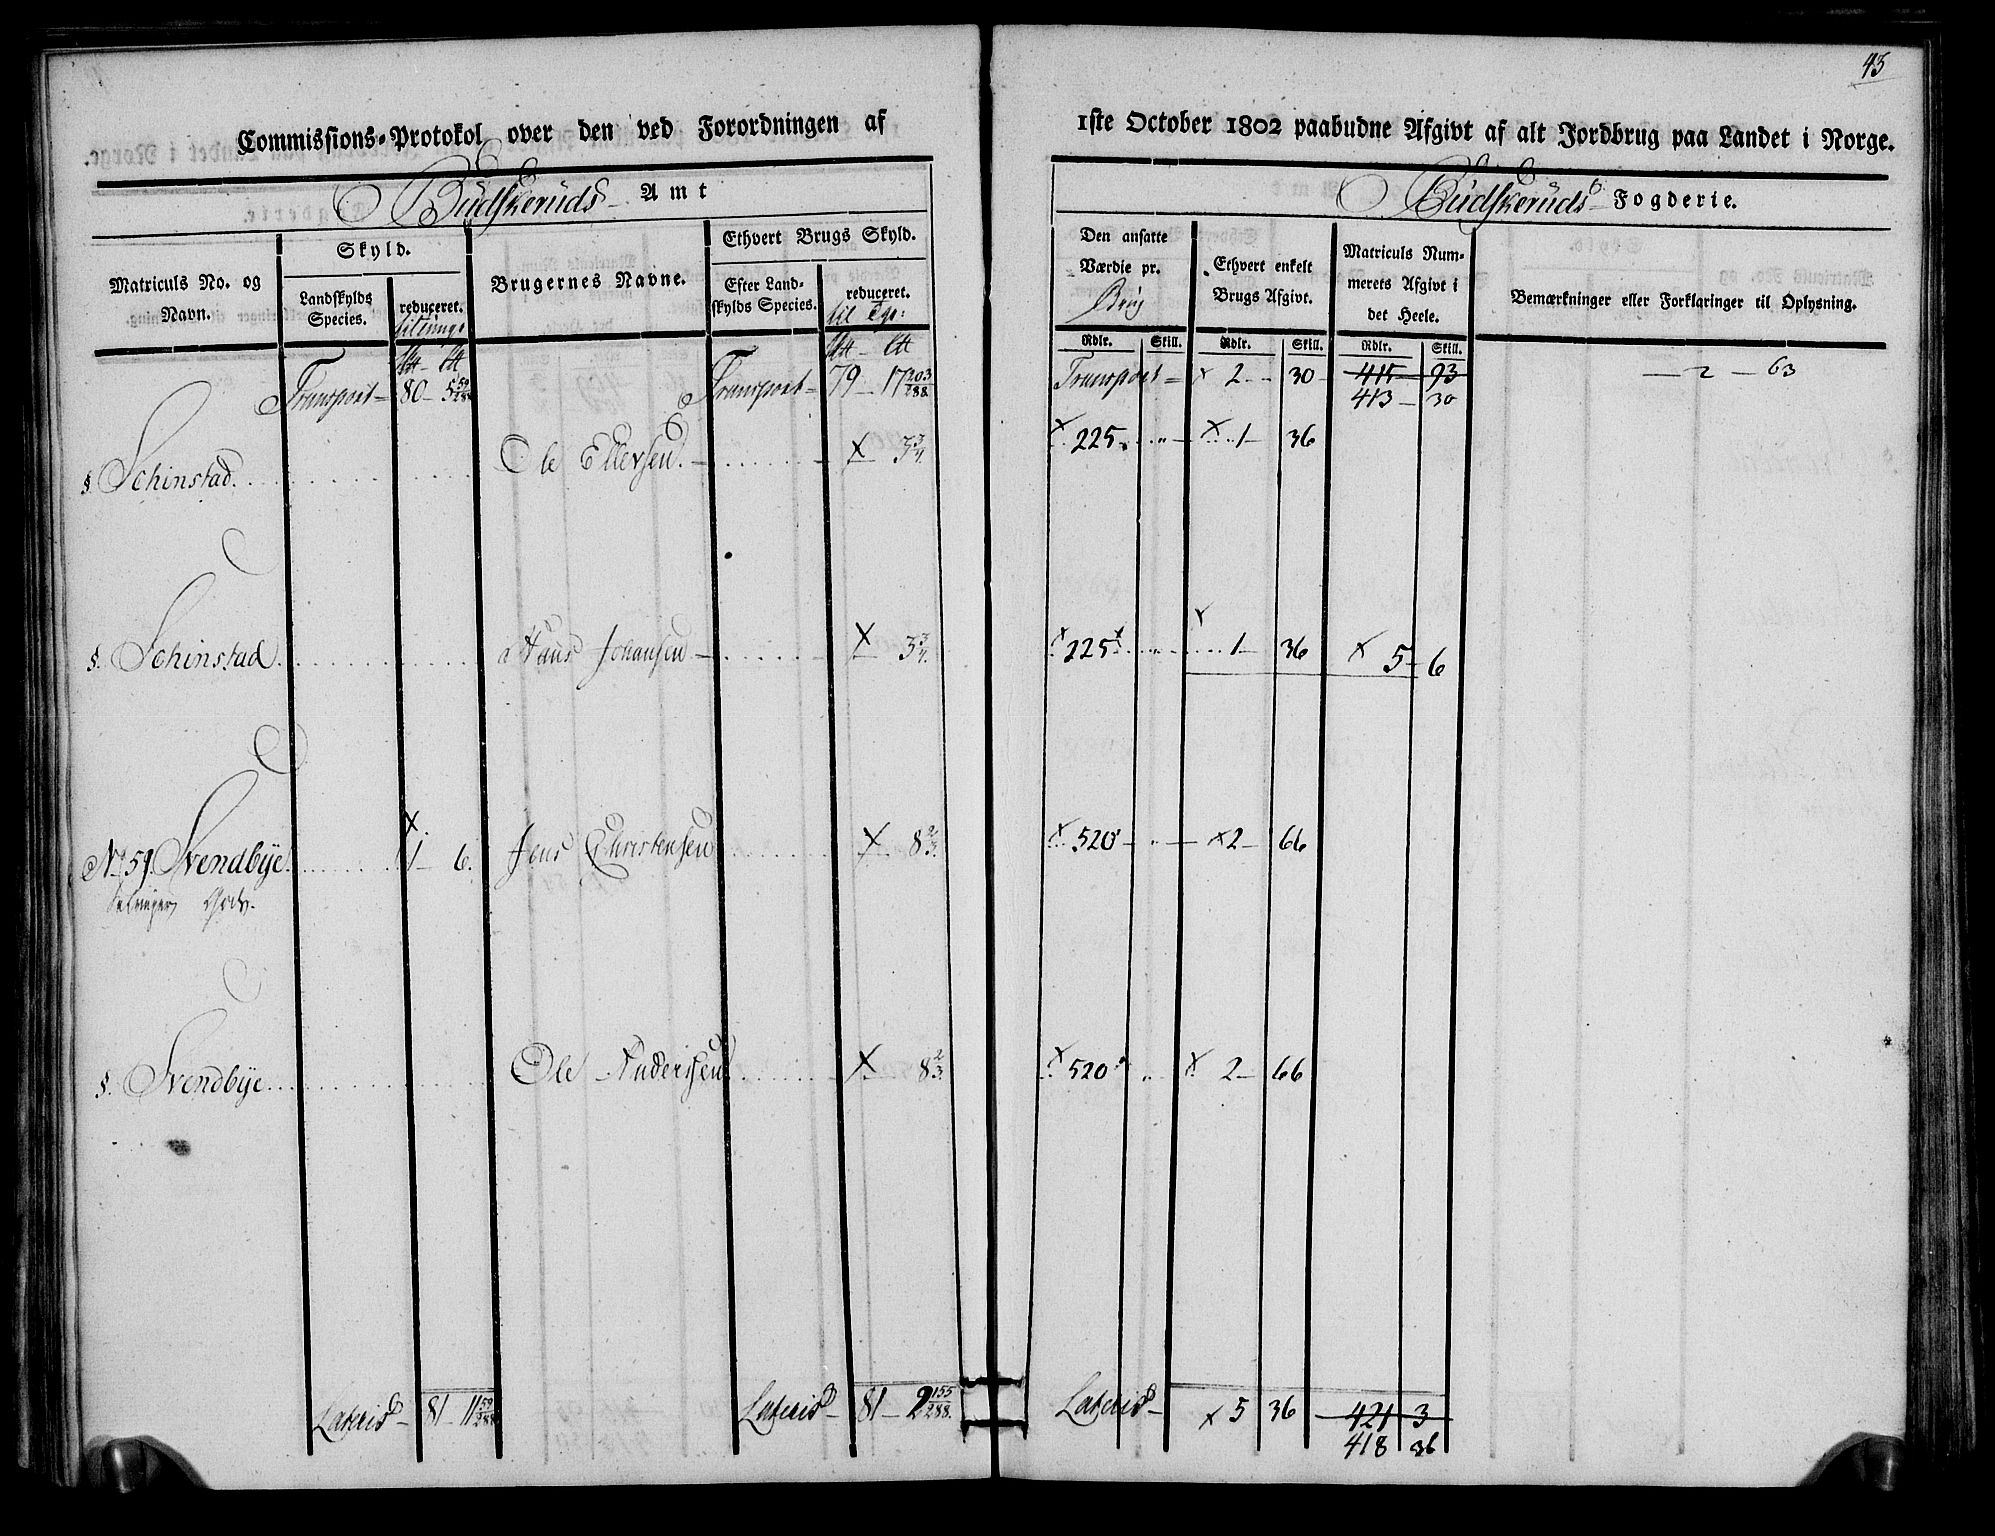 43
Commissions-Protokol over den ved Forordningen af 1ste October 1802 paabudne Afgivt af alt Jordbrug paa Landet i Norge.
Budskeruds Amt
Budskeruds Fogderie.
Matriculs No. og Navn.
Skyld.
Landskylds Species.
reduceret.
Brugernes Navne.
Ethvert Brugs Skyld.
Efter Landskylds Species.
reduceret.
til
Den ansatte Værdie pr. Brug
Ethvert enkelt Brugs Afgivt.
Matriculs Nummerets Afgivt i det Heele.
Bemærkninger eller Forklaringer til Oplysning.
Rdlr. Skill. Rdlr. Skill. Rdlr. Skill.
Transport – 80 – 5 59/288 Transport – 79 – 17 203/288 Transport – x 2 – 30 – 415 – 93 — 2 — 63
413 – 30
§ Schinstad. Ole Ellersen. x 3 3/4. x 225. „ x 1 – 36
§. Schinstad. Hans Johansen x 3 3/4. x 225 „ x 1 – 36 x 5 – 6
No 59. Svendbye. x 1 – 6. Jens Christensen x 8 2/3. x 520 – „ x 2 – 66
§. Svendbye. Ole Andersen. x 8 2/3. x 520 „ x 2 – 66
Lateris – 81 – 11 59/288 Lateris – 81 – 2 155/288. Lateris – x 5 36 421 – 3
418 36